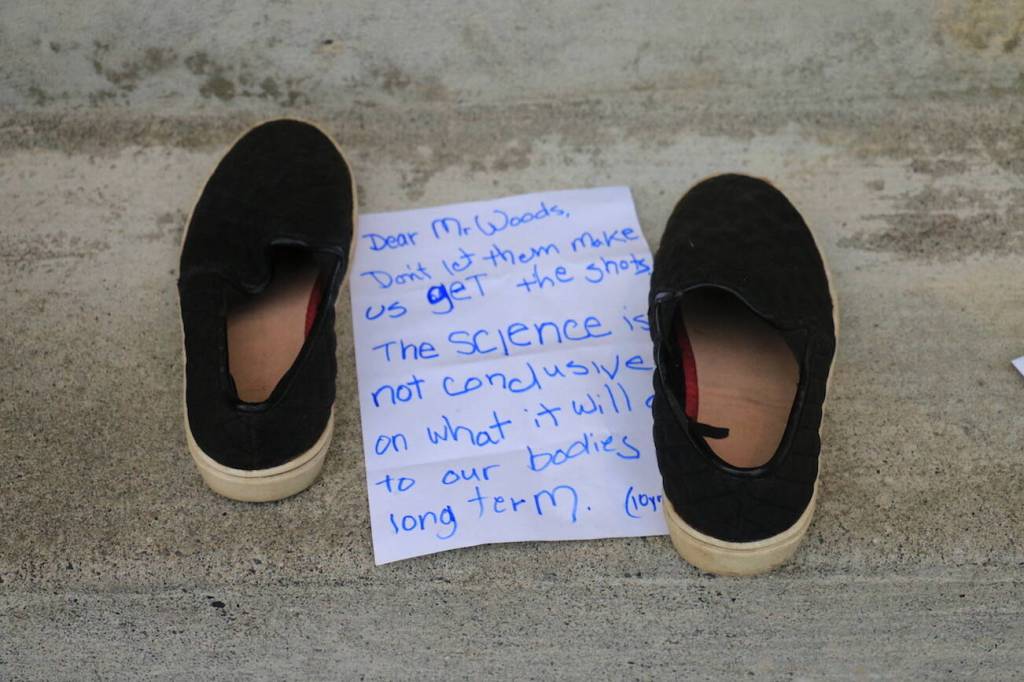 Dear Mr Woods,
Don't let them make
us get the shots
The science is
not conclusive
on what it will
to our bodies
long term. (10yr